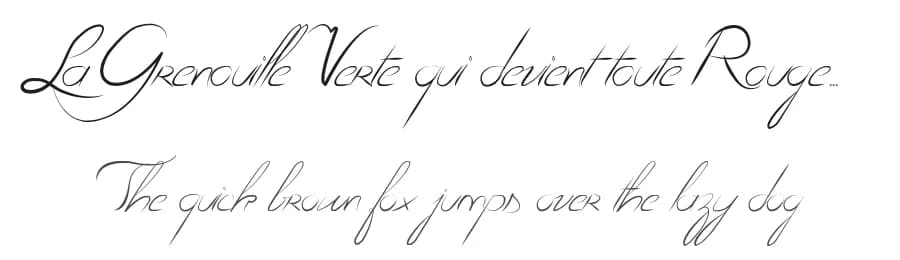 La Grenouille Verte qui devient toute Rouge...
The quick brown fox jumps over the lazy dog